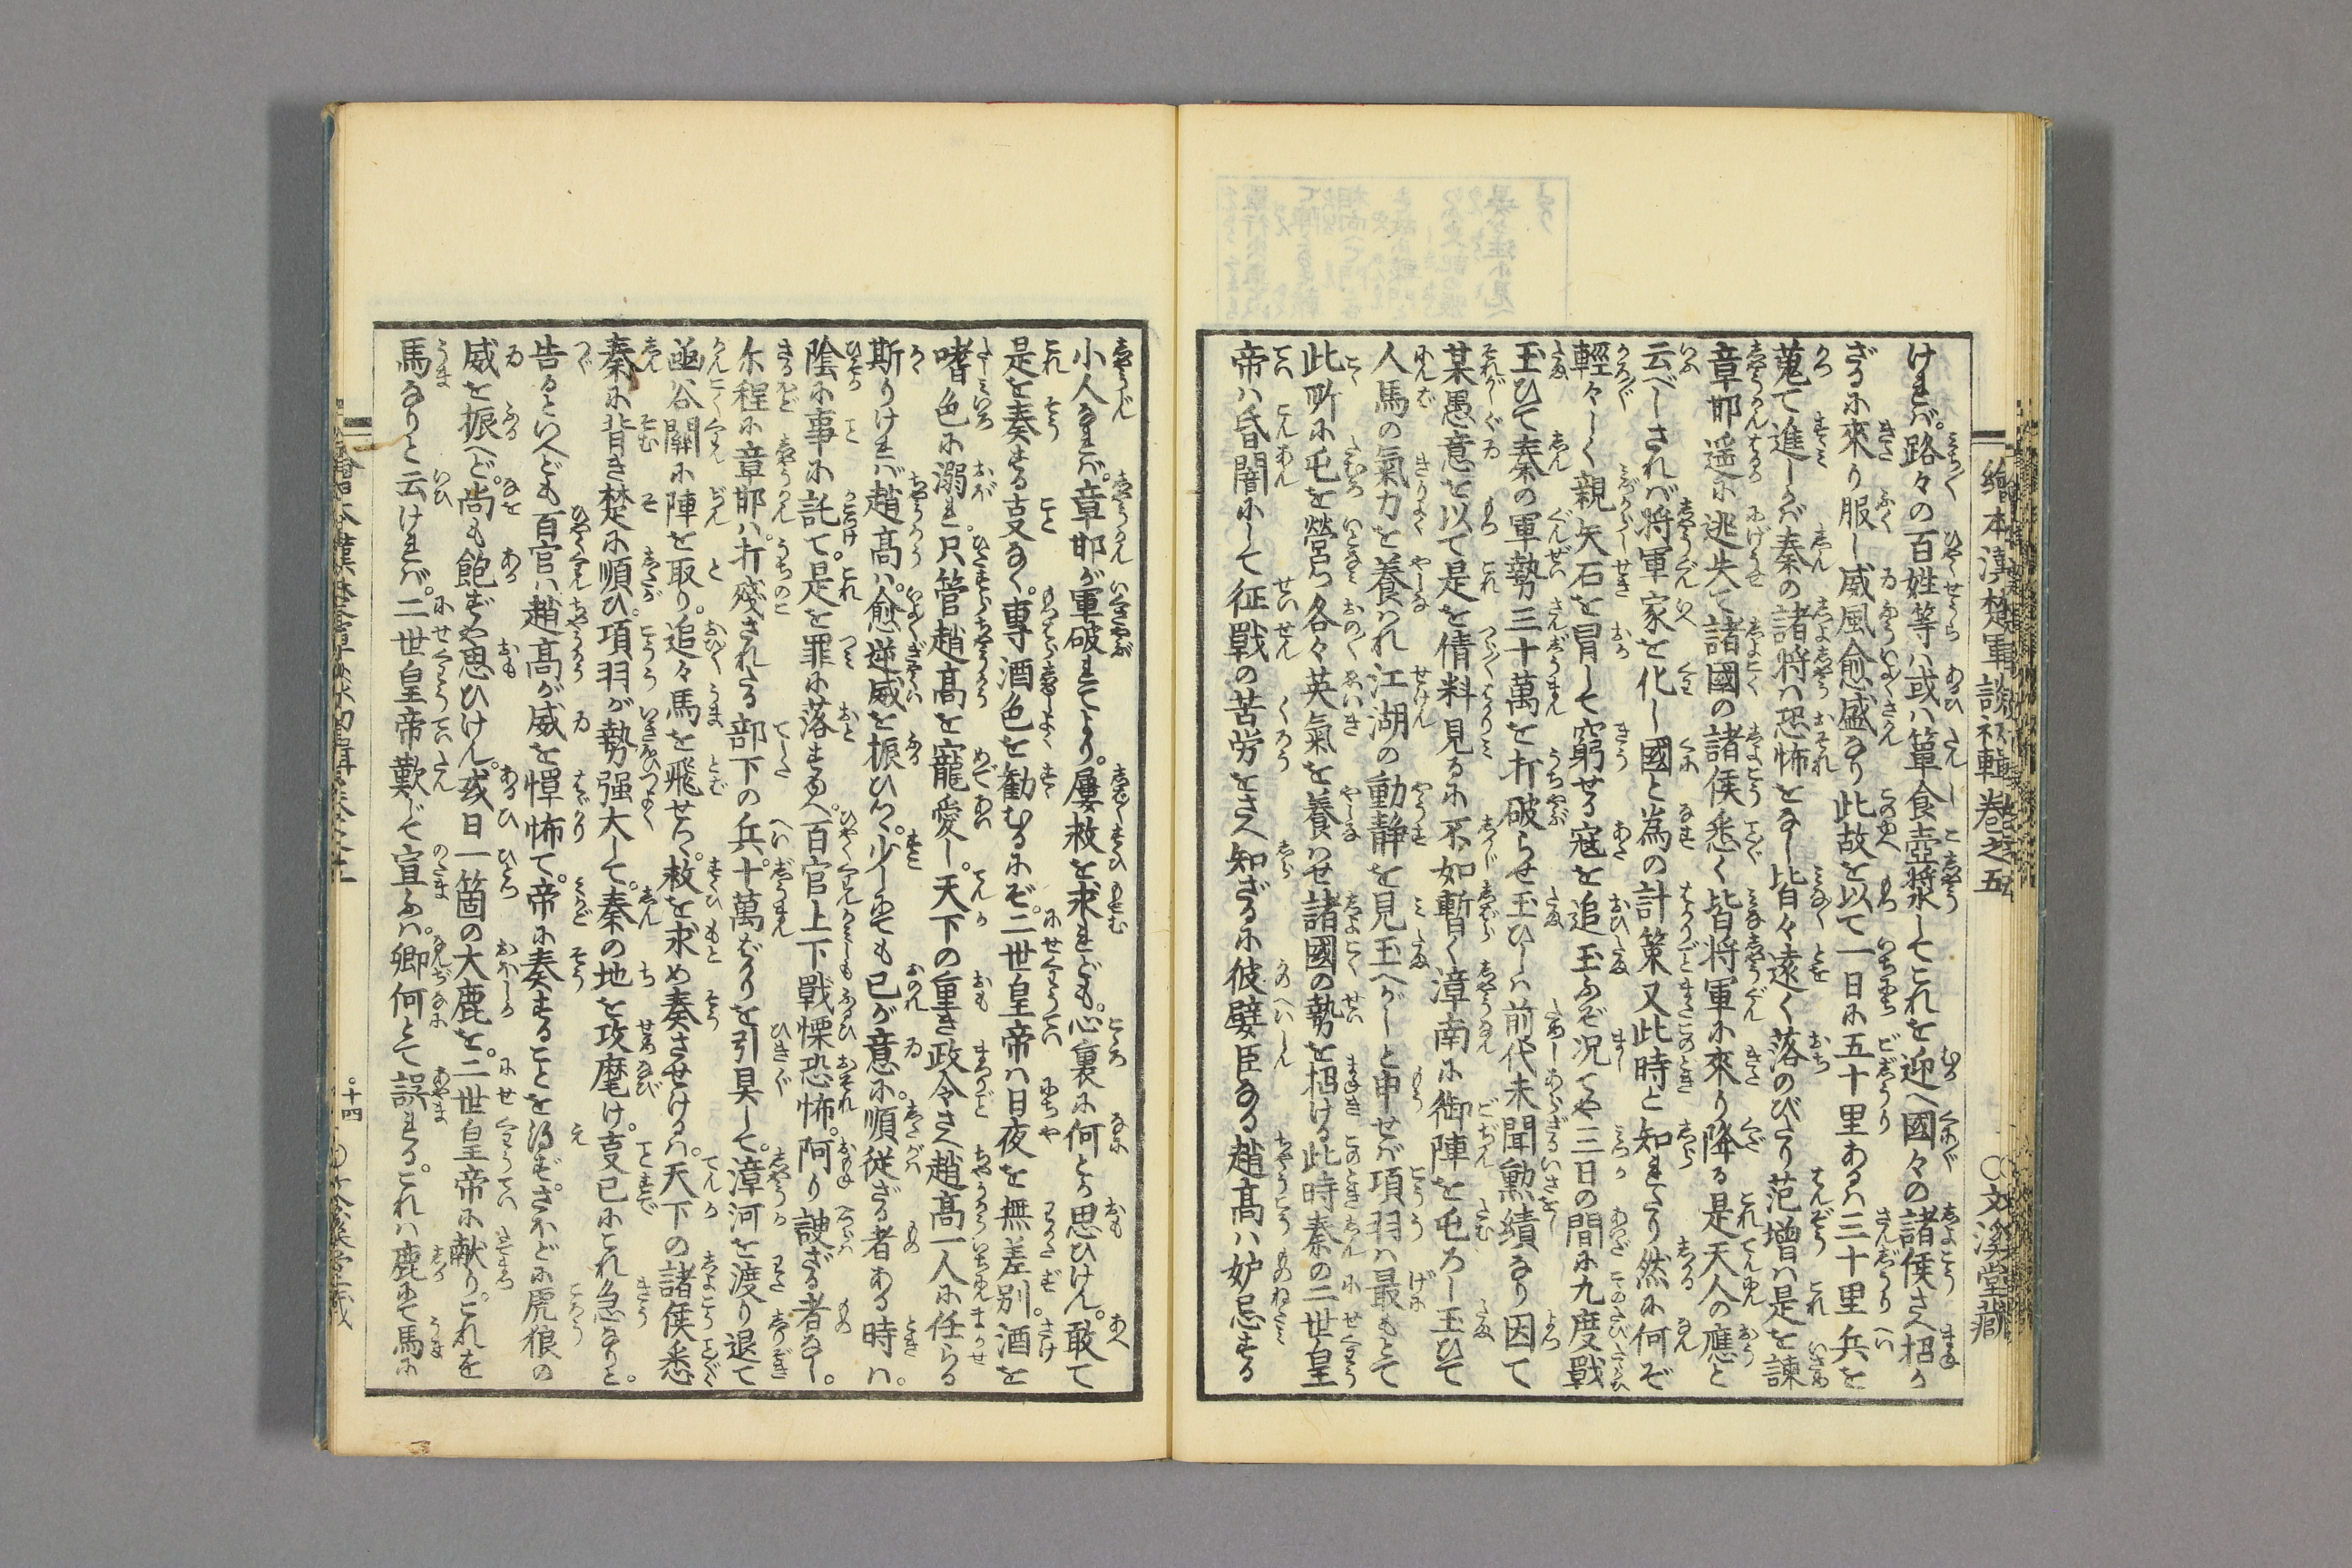 繪本漢楚軍談初輯巻之五
○文溪堂藏
けれバ。路々の百姓等ハ或ハ簞食壺漿してこれを迎へ國々の諸侯さへ招か
ざるに來り服し威風愈盛なり此故を以て一日に五十里あるハ三十里兵を
蒐て進しかバ秦の諸将ハ恐怖をなし皆々遠く落のびたり范増ハ是を諫
章邯遥に逃失て諸國の諸侯悉く皆将軍に來り降る是天人の應と
云べしされバ将軍家を化し國と為の計策又此時と知れたり然に何ぞ
輕々しく親矢石を冒して窮せる寇を追玉ふぞ况てや三日の間に九度戰
玉ひて秦の軍勢三十萬を打破らせ玉ひしハ前代未聞勲績なり因て
某愚意を以て是を倩料見るに不如暫く漳南に御陣を屯ろし玉ひて
人馬の氣力を養ハれ江湖の動静を見玉へかしと申せバ項羽ハ最もとて
此所に屯を營つ各々英氣を養ハせ諸國の勢を招ける此時秦の二世皇
帝ハ昏闇にして征戰の苦労をさへ知ざるに彼嬖臣なる趙高ハ妒忌する
小人なれバ。章邯が軍破れてより。屢救を求れども。心裏に何とか思ひけん。敢て
是を奏する支なく。専酒色を勧むるにぞ。二世皇帝ハ日夜を無差別。酒を
嗜色に溺れ。只管趙高を寵愛し。天下の重き政令さへ趙高一人に任らる
斯りけれバ趙高ハ。愈逆威を振ひつ。少しにても己が意に。順従ざる者ある時ハ。
陰に事に託て。是を罪に落すゆへ。百官上下戰慄恐怖。阿り諛ざる者なし。
尓程に章邯ハ。打殘されたる部下の兵。十萬ばかりを引具して。漳河を渡り退て
凾谷關に陣を取り。追々馬を飛せつ。救を求め奏させけるハ。天下の諸侯悉
秦に背き楚に順ひ。項羽が勢强大して。秦の地を攻麾け。支已にこれ急なりと。
告るといへども百官ハ趙高が威を憚怖て。帝に奏することを得ず。さほどに虎狼の
威を振へど。尚も飽ずや思ひけん。或日一箇の大鹿を。二世皇帝に献り。これを
馬なりと云けれバ。二世皇帝歎じて宣ふハ。卿何とて誤れる。これハ鹿にて馬に
十四